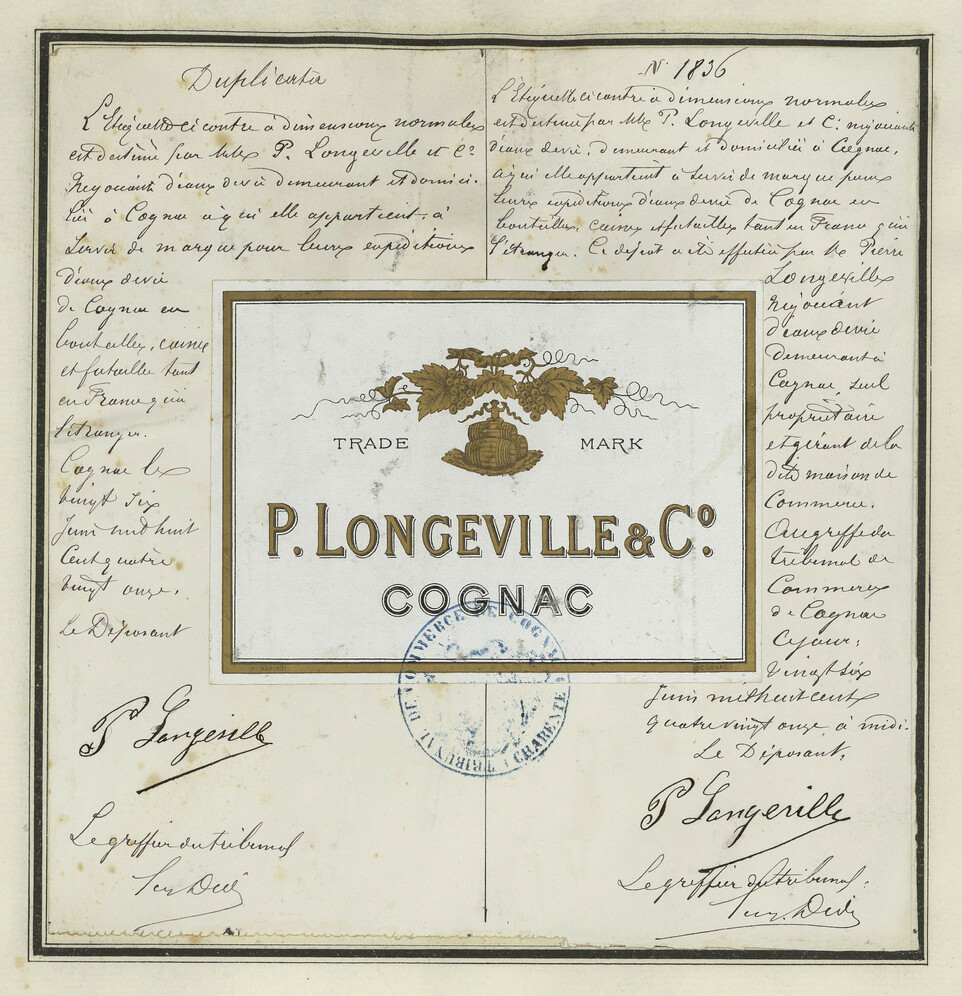 Duplicata
L'Etiquette ci contre à dimensions normales
est destiné par MM P. Longeville et Co
Négociants d'eaux de vie demeurant et domici-
liés à Cognac à qui elle appartient, à
servir de marque pour leurs expéditions
d'eaux de vie
de Cognac en
bouteilles, caisses
et futailles tant
en France qu'à
l'étranger.
Cognac le
vingt six
Juin mil huit
cent quatre
vingt onze.
Le Déposant
P Longeville
Le greffier du tribunal
N° 1836
L'Etiquette ci contre à dimensions normales
est destiné par MM P. Longeville et C. négociants
d'eaux de vie, demeurant et domiciliés à Cognac,
à qui elle appartient à servir de marque pour
leurs expéditions d'eaux de vie de Cognac en
bouteilles, caisses et futailles tant en France qu'à
l'étranger. Ce dépot a été effectué par M Pierre
Longeville
Négociant
d'eaux de vie
demeurant à
Cognac seul
propriétaire
et gérant de la
dite maison de
Commerce.
Au greffe du
tribunal de
Commerce
de Cognac
Ce jour,
vingt six
Juin mil huit cent
quatre vingt onze, à midi.
Le Déposant,
P Longeville
Le greffier du tribunal:
TRADE MARK
P. LONGEVILLE & Co.
COGNAC
TRIBUNAL DE COMMERCE DE COGNAC
CHARENTE
COGNAC